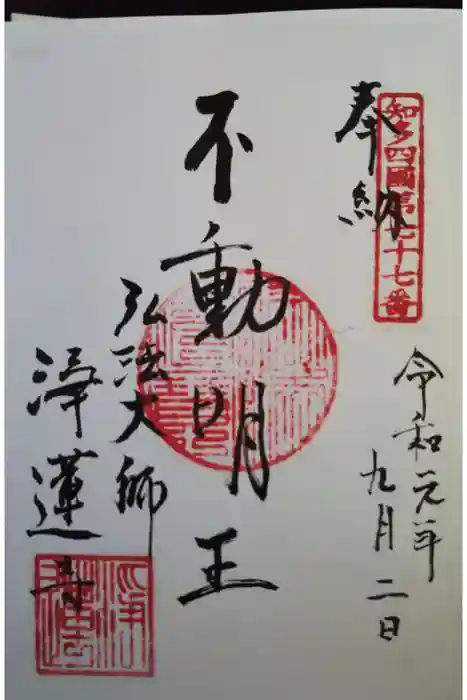 奉納
知多四國第七十七番
令和元年
九月二日
不動明王
弘法大師
浄蓮寺